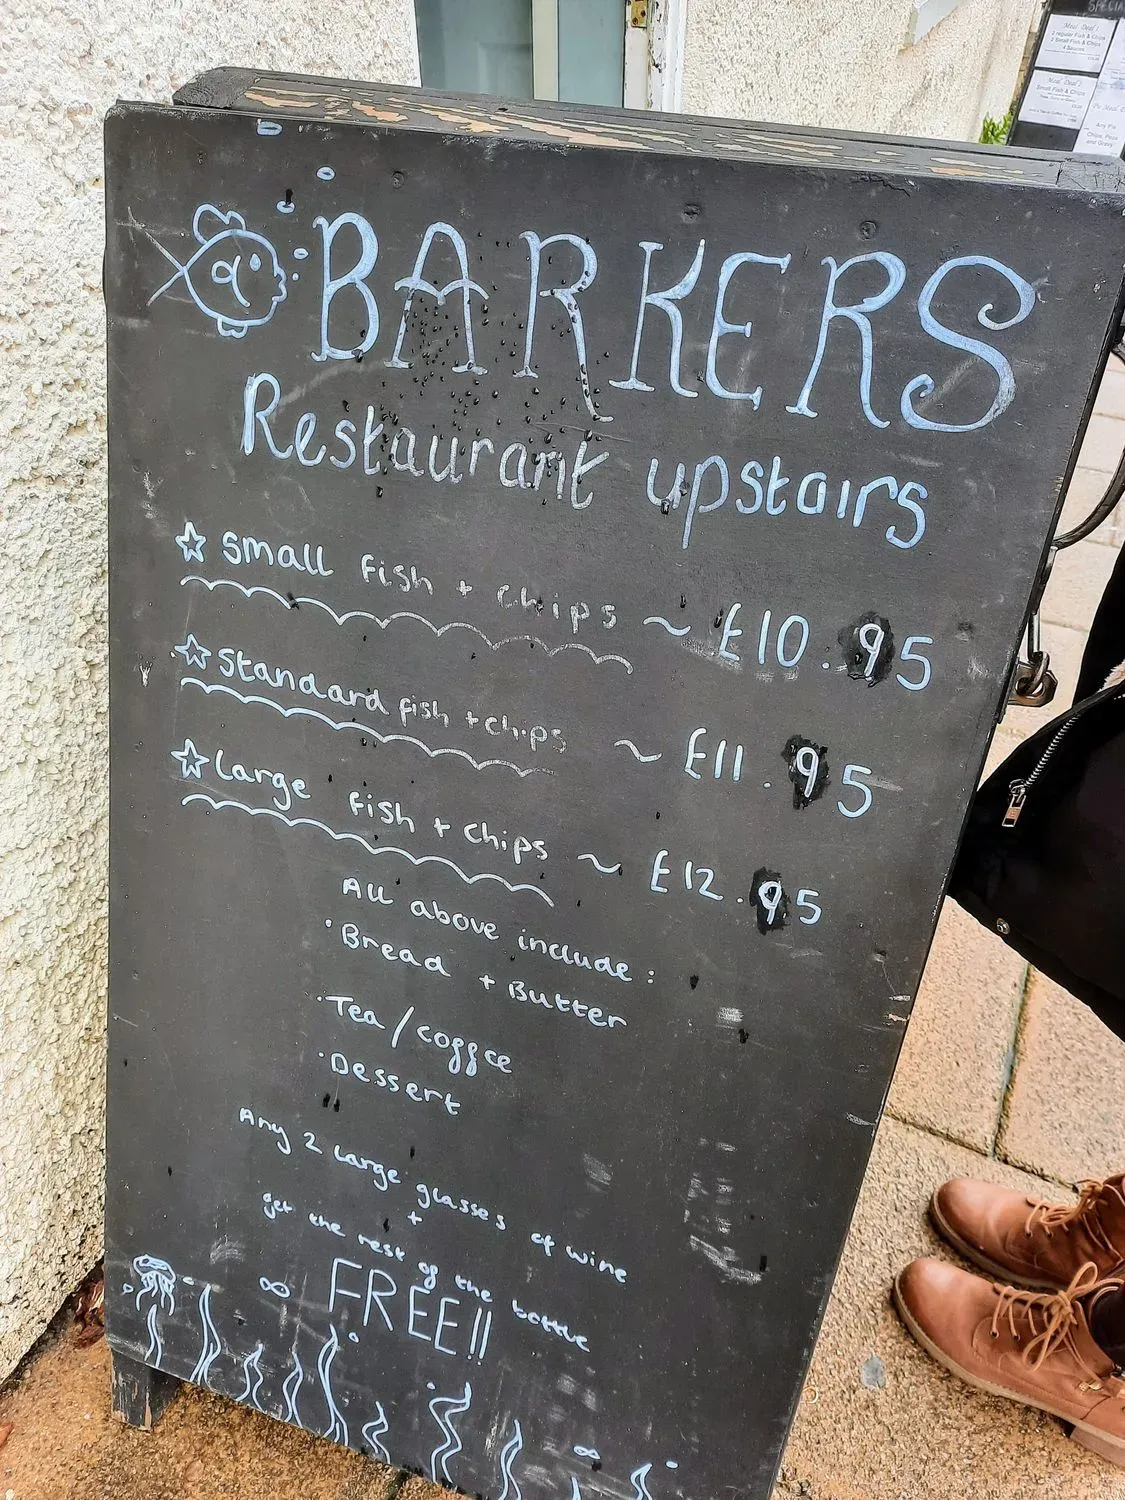 BARKERS
Restaurant upstairs
small fish + chips ~ £10.95
standard fish + chips ~ £11.95
large fish + chips ~ £12.95
All above include:
· Bread + Butter
· Tea/coffee
· Dessert
Any 2 large glasses of wine
+
get the rest of the bottle
FREE!!
Meal Deal 1
2 regular Fish & Chips
2 Small Fish & Chips
4 Sauces
Meal Deal 2
Small Fish & Chips
Any Pie
Chips, Peas
and Gravy